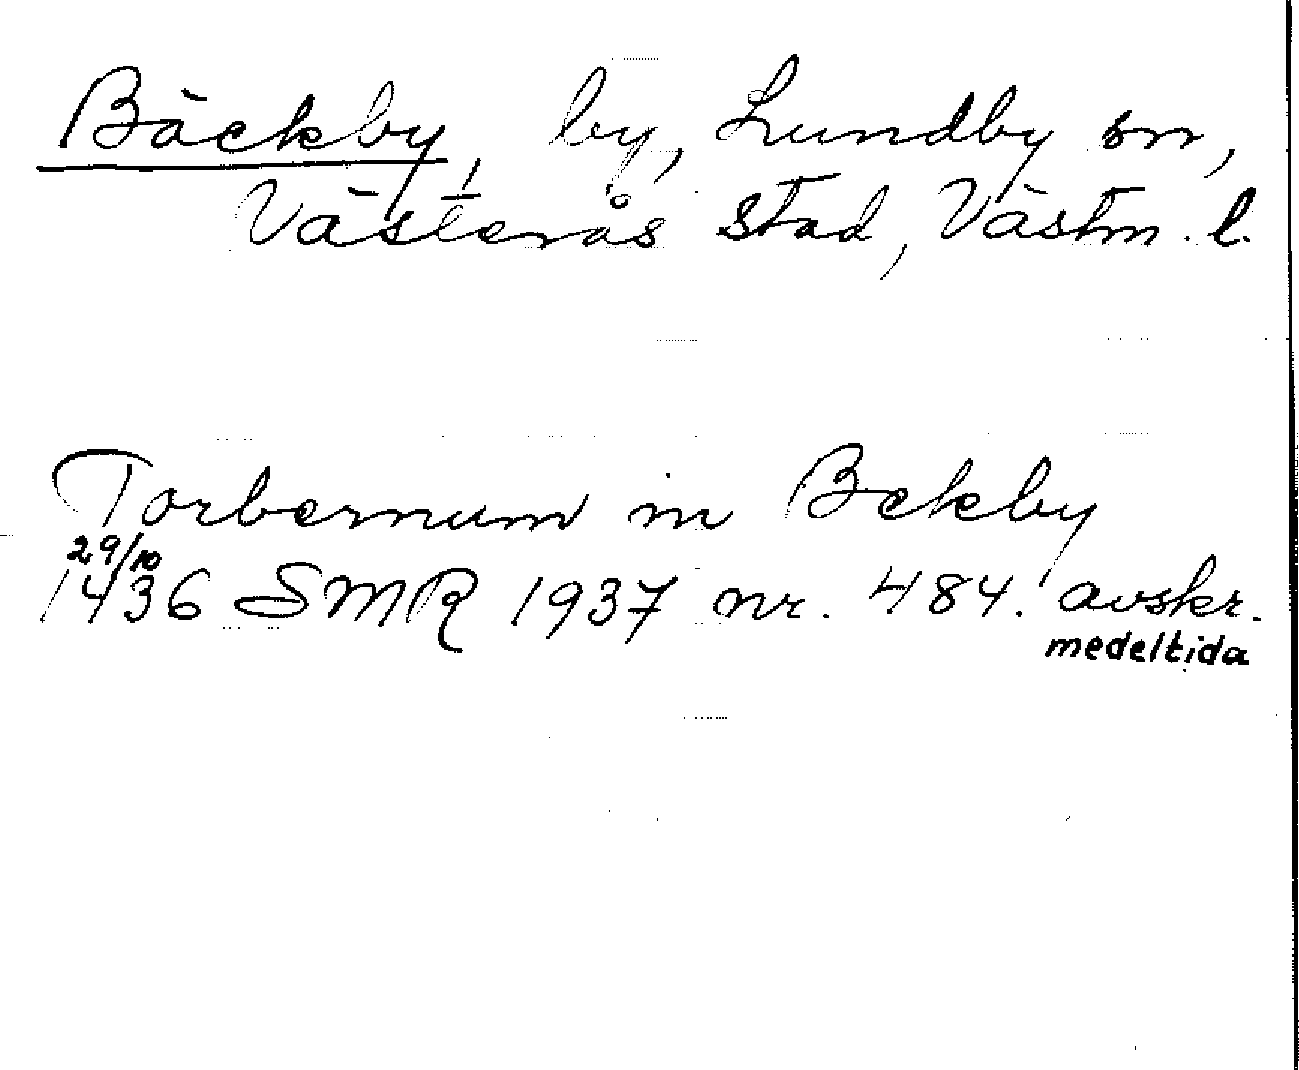 Bäckby, by, Lundby sn,
Västerås stad, Västm. l.
Torbernum in Bekby
29/10
1436 SMR 1937 nr. 484. avskr.
medeltida